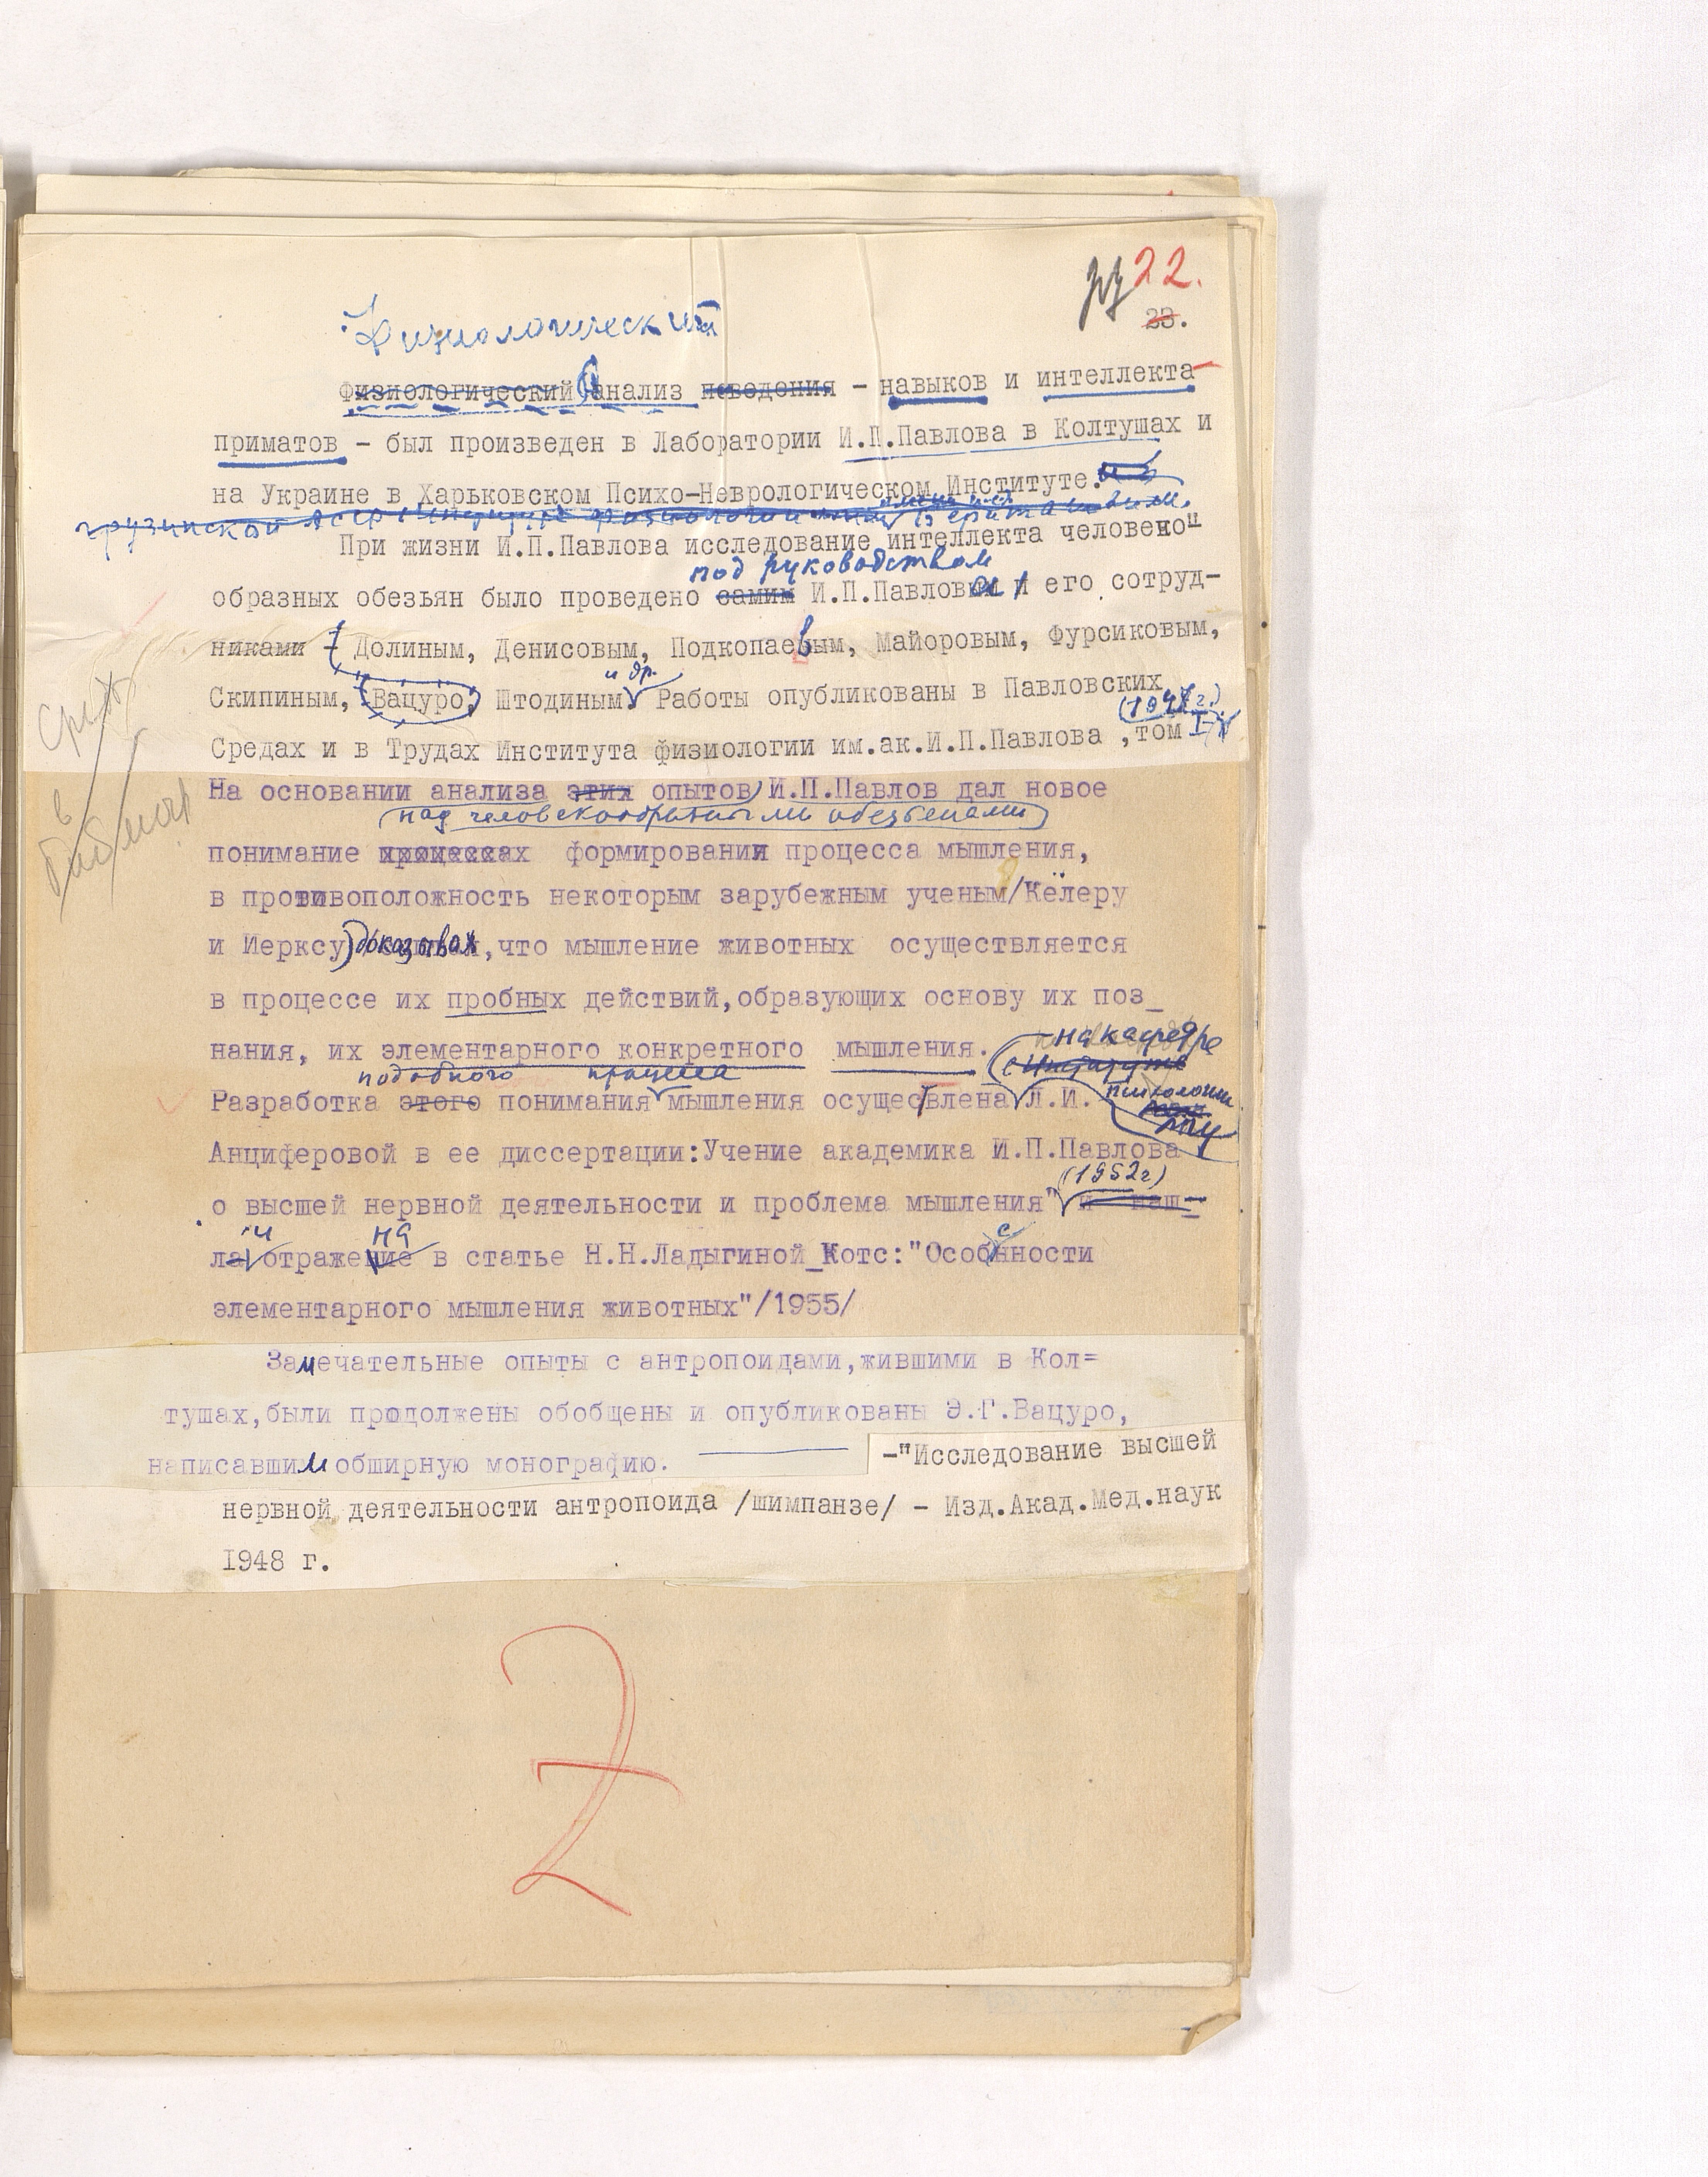 22.
23.
Физиологический
Физиологический анализ поведения - навыков и интеллекта
приматов - был произведен в Лаборатории И.П.Павлова в Колтушах и
на Украине в Харьковском Психо-Неврологическом Институте.
грузинской
При жизни И.П.Павлова исследование интеллекта человеко-
под руководством
образных обезьян было проведено самим И.П.Павловым и его сотруд-
никами - Долиным, Денисовым, Подкопаевым, Майоровым, Фурсиковым,
и др.
Скипиным, Вацуро, Штодиным Работы опубликованы в Павловских
Средах и в Трудах Института физиологии им.ак.И.П.Павлова ,том I-
На основании анализа этих опытов И.П.Павлов дал новое
над человекообразными обезьянами
понимание процессах формирования процесса мышления,
в противоположность некоторым зарубежным ученым/Кёлеру
и Иерксу) доказывая,что мышление животных осуществляется
в процессе их пробных действий,образующих основу их поз_
нания, их элементарного конкретного мышления.
на кафедре
Институте
подобного процесса
Разработка этого понимания мышления осуществлена Л.И.
психологии
МГУ
Анциферовой в ее диссертации:Учение академика И.П.Павлова
(1952г)
о высшей нервной деятельности и проблема мышления" и наш-
и на
ла отражение в статье Н.Н.Ладыгиной_Котс:"Особнности
элементарного мышления животных"/1955/
Замечательные опыты с антропоидами,жившими в Кол=
тушах,были продолжены обобщены и опубликованы Э.Г.Вацуро,
написавшим обширную монографию.
-"Исследование высшей
нервной деятельности антропоида /шимпанзе/ - Изд.Акад.Мед.наук
1948 г.